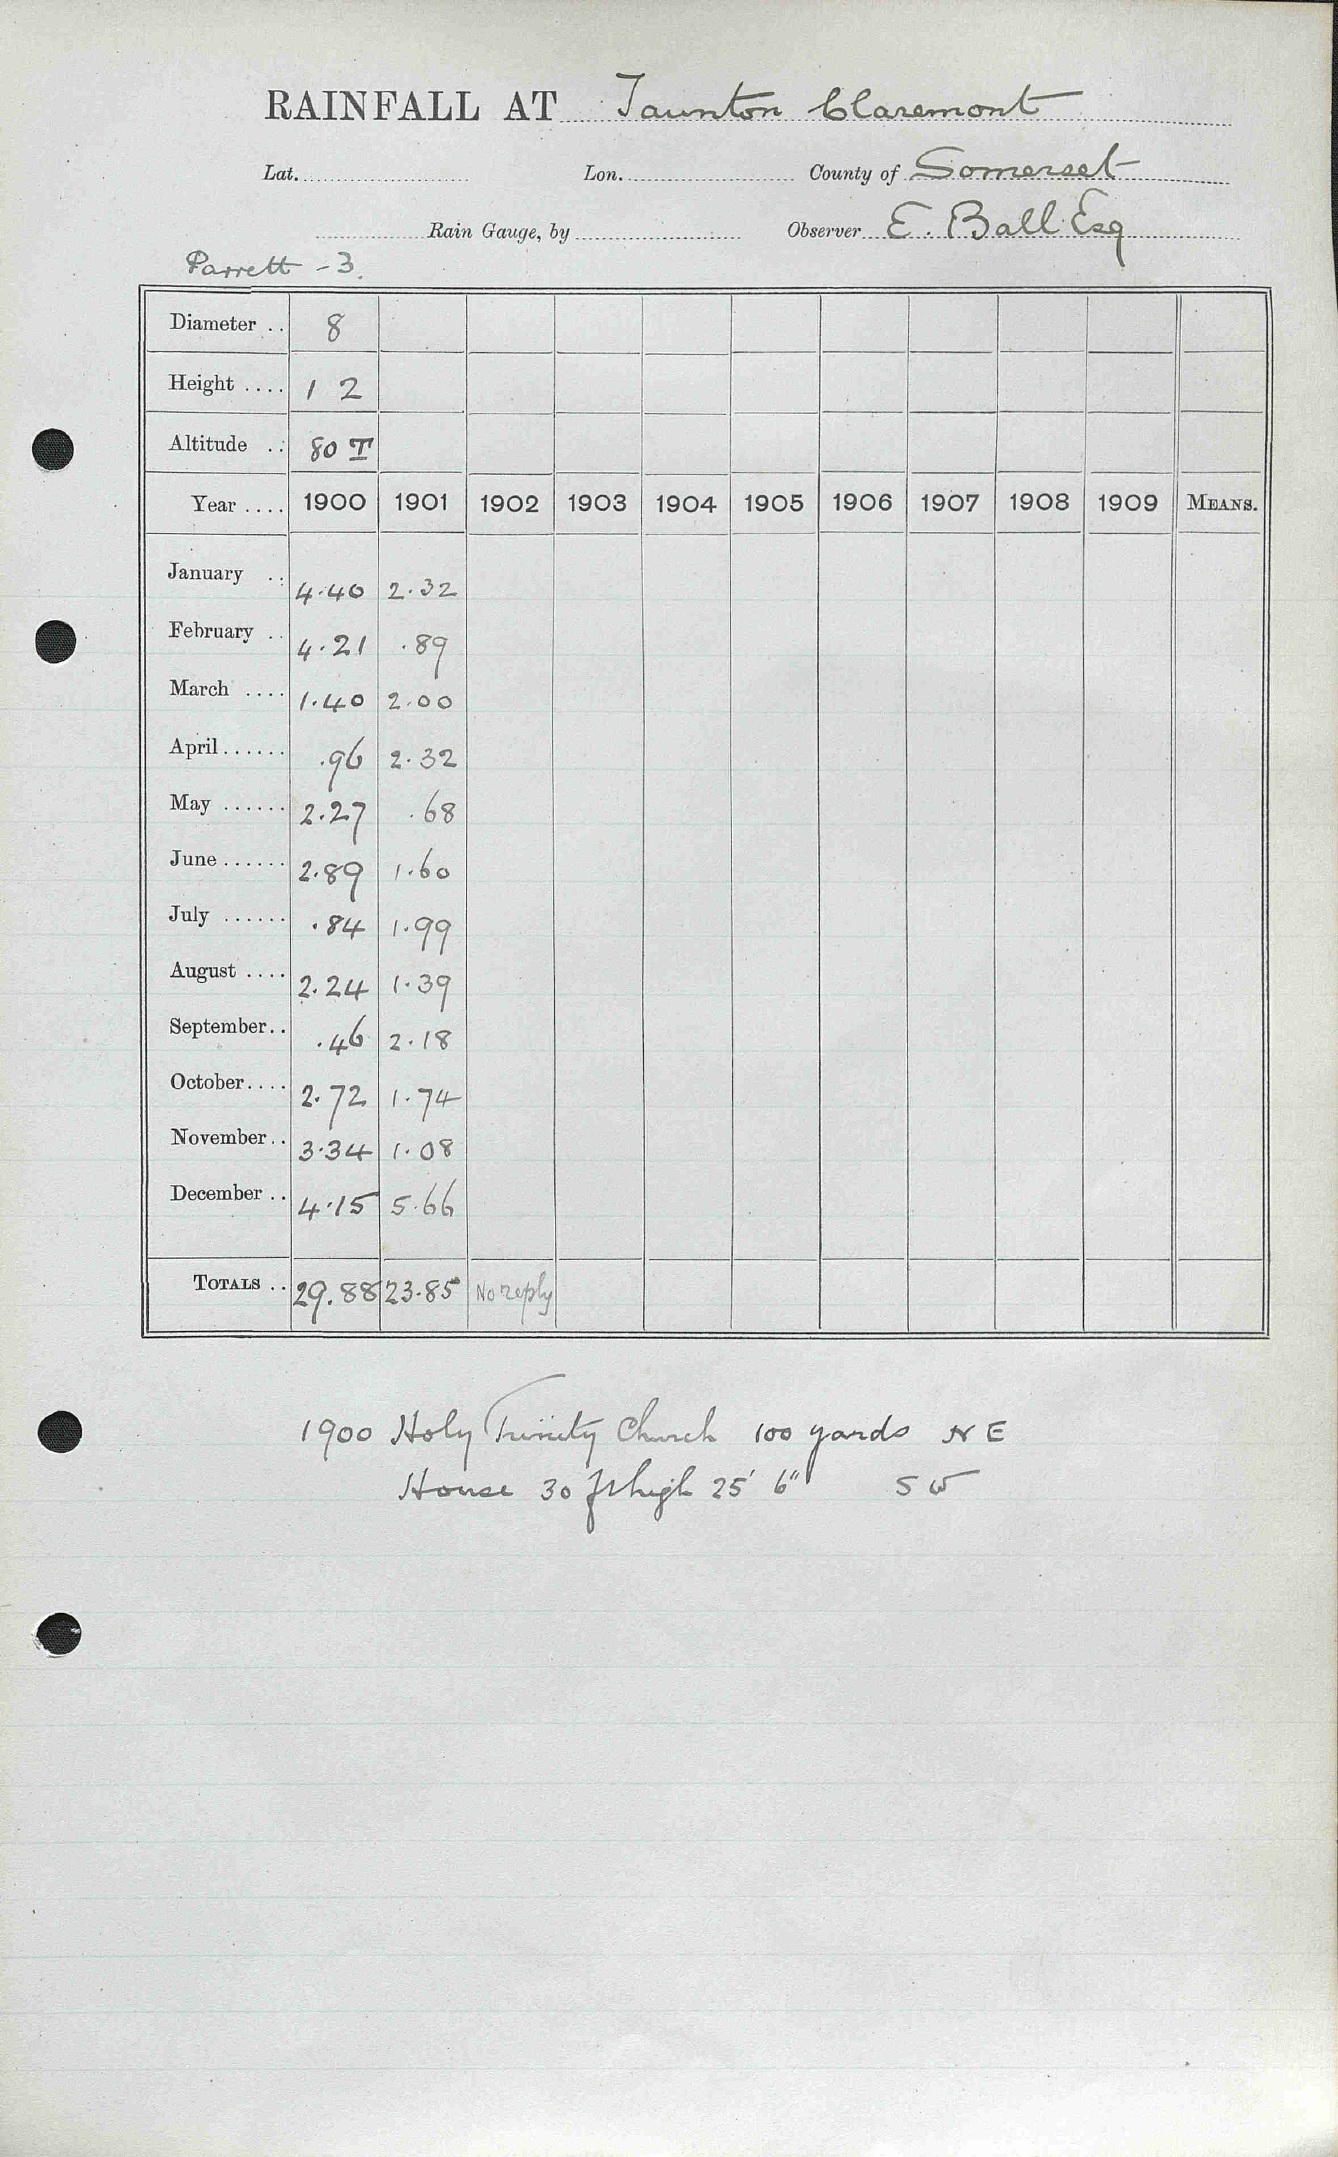 RAINFALL AT Taunton Claremont
Lat. Lon. County of Somerset
Rain Gauge, by Observer E. Ball Esq
Parrett - 3.
Diameter .. 8
Height .... 1 2
Altitude .. 80 T
Year .... 1900 1901 1902 1903 1904 1905 1906 1907 1908 1909 MEANS.
January .. 4.40 2.32
February .. 4.21 .89
March .... 1.40 2.00
April...... .96 2.32
May ...... 2.27 .68
June...... 2.89 1.60
July ...... .84 1.99
August .... 2.24 1.39
September.. .46 2.18
October.... 2.72 1.74
November.. 3.34 1.08
December .. 4.15 5.66
TOTALS .. 29.88 23.85 No reply
1900 Holy Trinity Church 100 yards N E
House 30 ft high 25' 6" S W